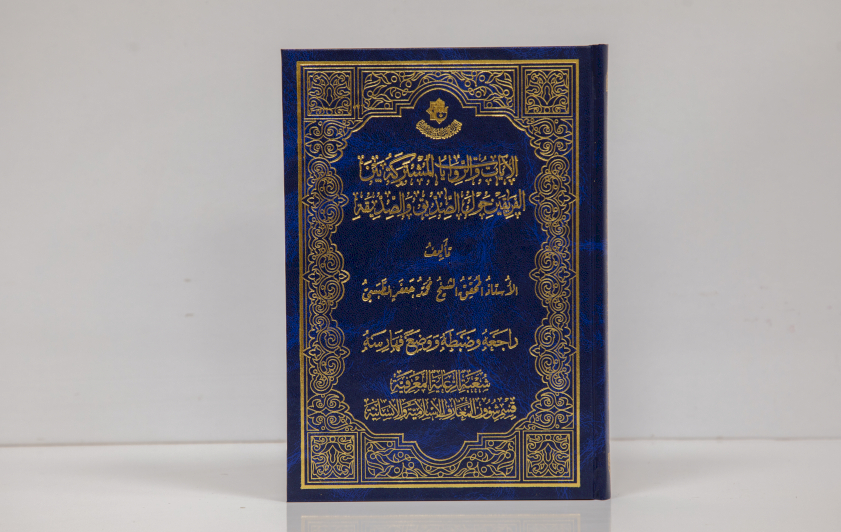 الآيات والروايات المشتركة بين
الفريقين حول الصديق والصديقة
تأليف
الأستاذ المحقق الشيخ محمد جعفر الطبسي
راجعه وضبطه ووضع فهارسه
شعبة الرعاية المعرفية
قسم شؤون المعارف الإسلامية والإنسانية